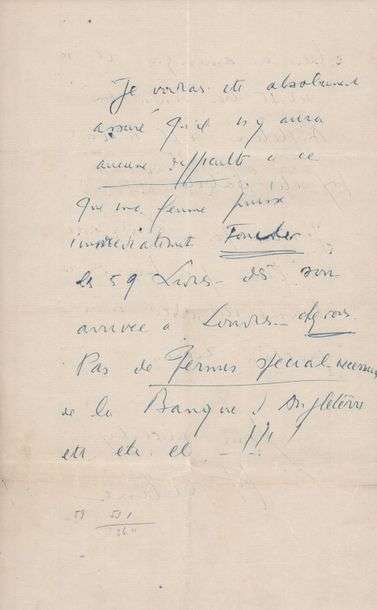 Je voudrais etre absolument
assuré qu'il n'y aura
aucune difficulté à ce
que ma femme puisse
immediatement Toucher
les 59 Livres - dès son
arrivée à Londres -
Pas de Permis special necessaire
de la Banque d'Angleterre
etc etc etc - !!!
59 591